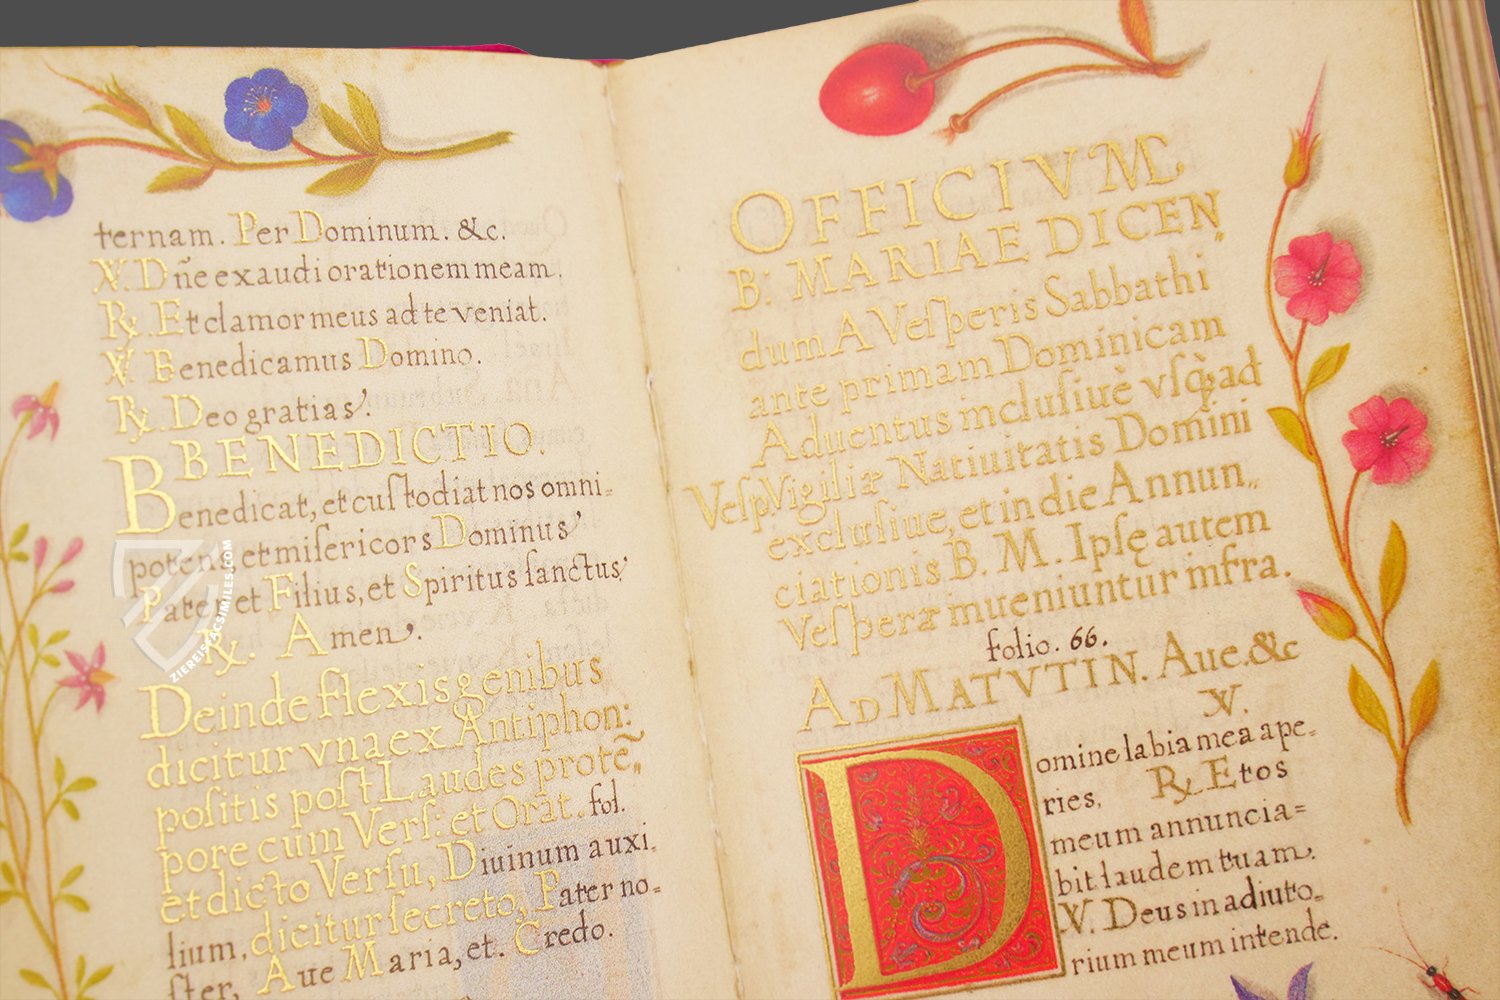 ternam. Per Dominum. &c.
V. Dñe exaudi orationem meam.
R. Et clamor meus ad te veniat.
V. Benedicamus Domino.
R. Deo gratias.
BENEDICTIO.
Benedicat, et custodiat nos omni-
potens, et misericors Dominus
Pater, et Filius, et Spiritus sanctus
R. Amen.
Deinde flexis genibus
dicitur vna ex Antiphon:
positis post Laudes protẽ,,
pore cum Vers: et Orat. fol.
et dicto Versu, Diuinum auxi.
lium, dicitur secreto, Pater no-
ster, Aue Maria, et. Credo.
OFFICIVM
B: MARIAE DICEN,,
dum A Vesperis Sabbathi
ante primam Dominicam
Aduentus inclusiuè vsq; ad
Vesp Vigiliæ Natiuitatis Domini
exclusiue, et in die Annun,,
ciationis B. M. Ipsę autem
Vesperæ inueniuntur infra.
folio. 66.
AD MATVTIN. Aue. &c
V.
Domine labia mea ape-
ries. R. Et os
meum annuncia=
bit laudem tuam.
V. Deus in adiuto-
rium meum intende.
ZIEREISFACSIMILES.COM